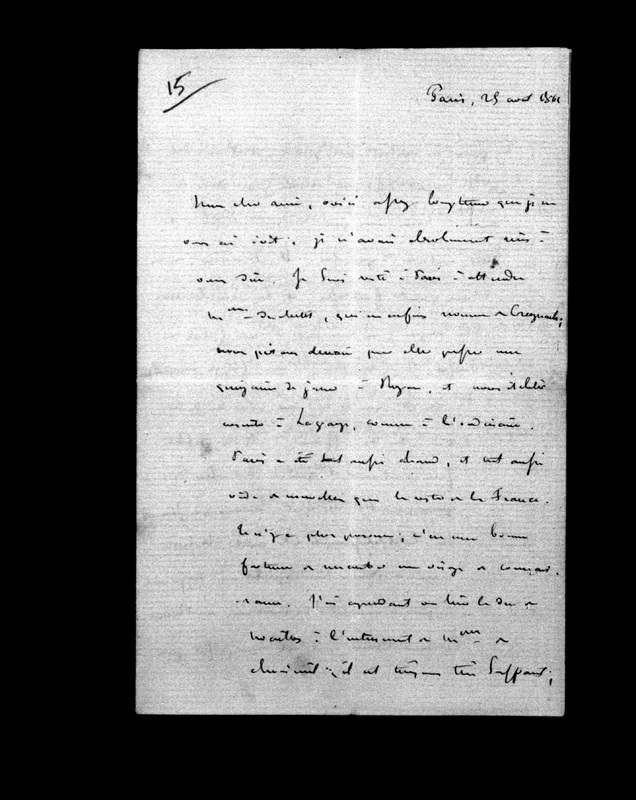 15
Paris, 25 août
Mon cher ami, voici assez longtemps que je ne
vous ai écrit ; je n'avais absolument rien à
vous dire. Je suis resté à Paris à attendre
Mme, qui m'enfin revenue de
nous pour aller passer une
quinzaine de jours à Royan, et nous
ensuite à Lagrange, comme à l'ordinaire.
Paris a été tout aussi chaud, et tout aussi
vide de nouvelles que le reste de la France.
Il n'y a plus personne ; c'est une bonne
fortune de rencontrer un visage de connais-
sance. J'ai cependant vu hier le duc de
Noailles à l'enterrement de Mme de
; il est toujours très souffrant,